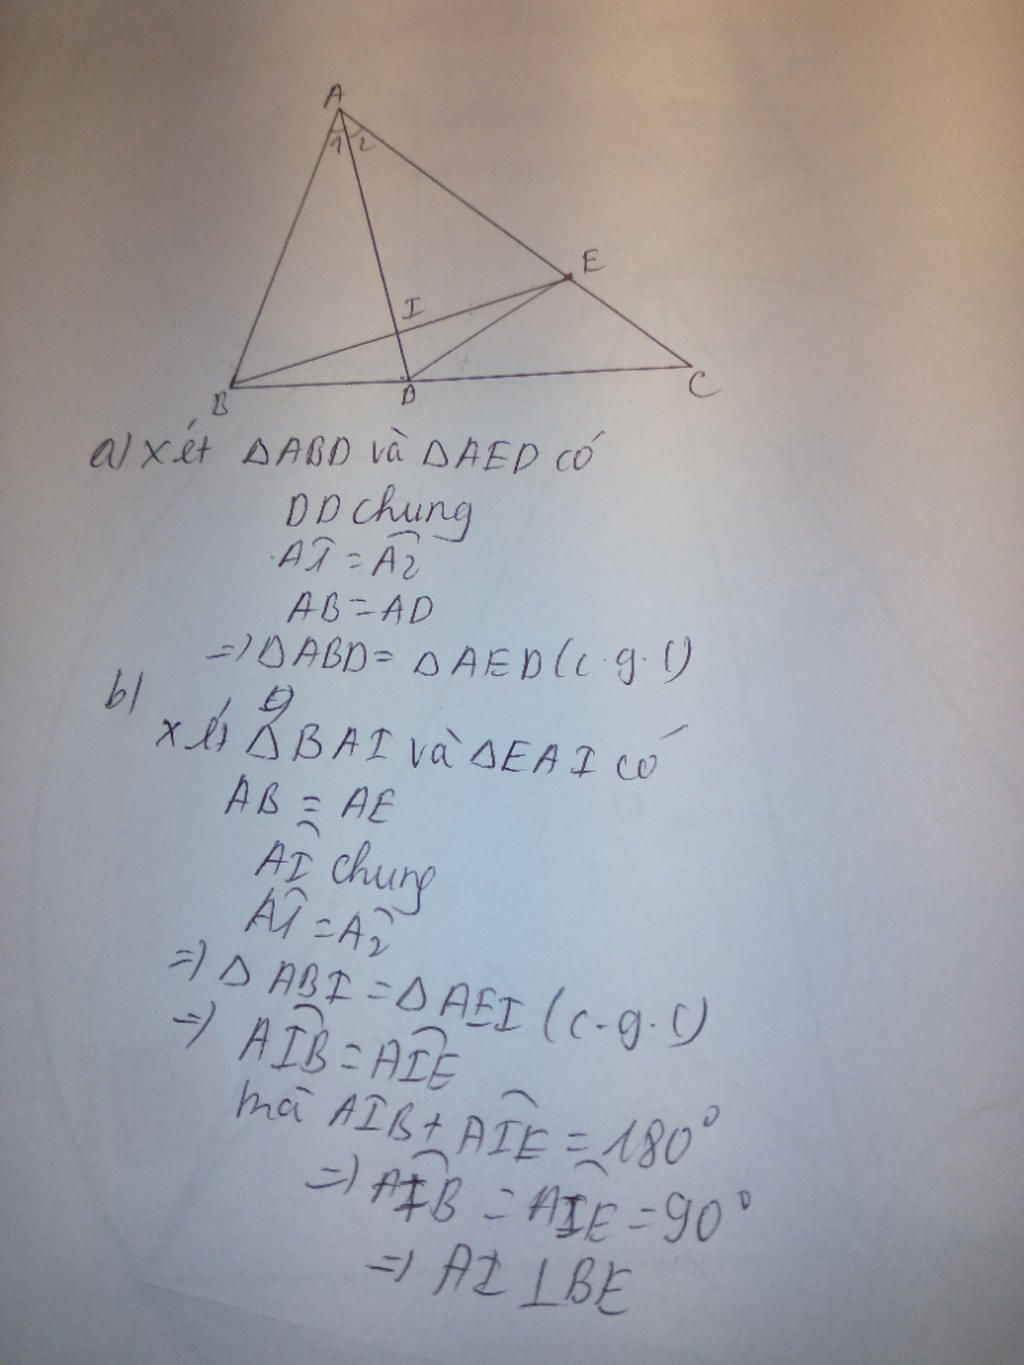 A
1 2
E
I
B
D
C
a) xét ΔABD và ΔAED có
DD chung
Â1 = Â2
AB = AD
=> ΔABD = ΔAED (c.g.c)
b)
xét ΔBAI và ΔEAI có
AB = AE
AI chung
Â1 = Â2
=> ΔABI = ΔAEI (c-g.c)
=> AÎB = AÎE
mà AIB + AÎE = 180°
=> AÎB = AÎE = 90°
=> AI ⊥ BE